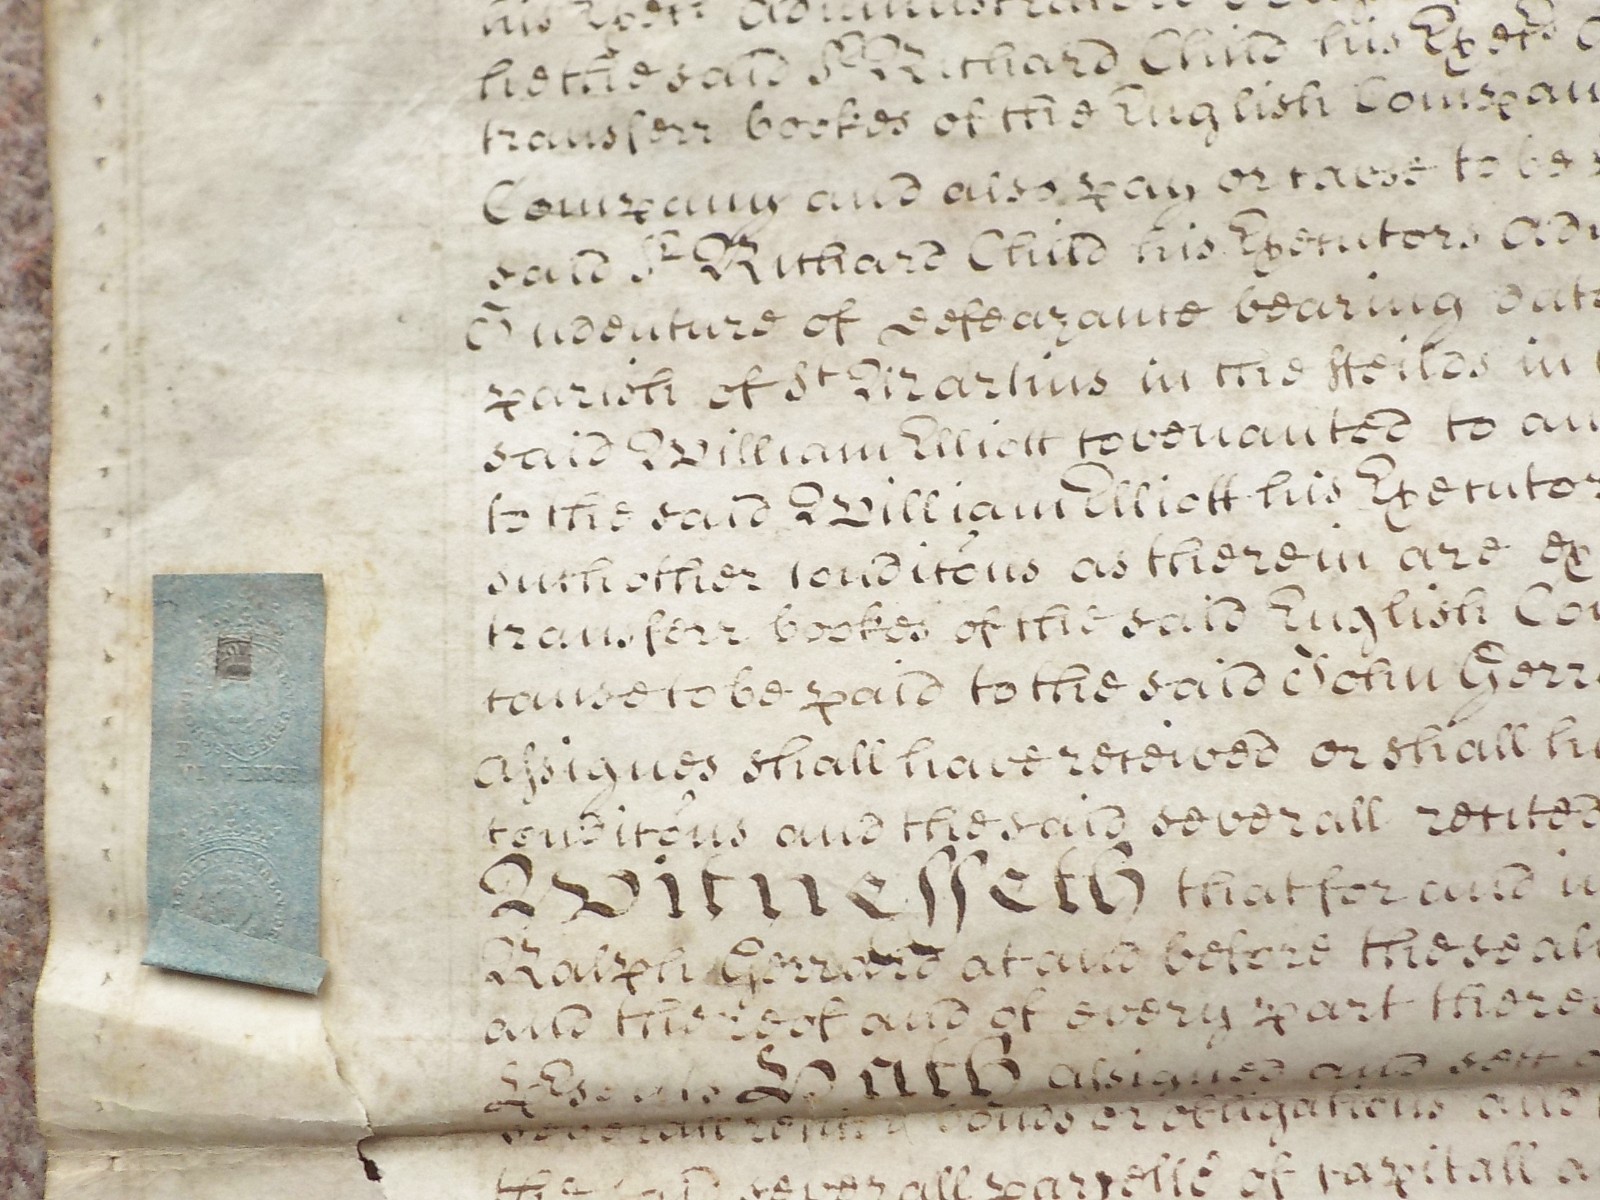 his Exers administrators
he the said Sr Richard Child his Exers
transferr bookes of the English Compan
Company and also pay or cause to be
said Sr Richard Child his Executors Adm
Indenture of defeazance bearing date
parish of St Martins in the ffeilds in
said William Elliott covenanted to an
to the said William Elliott his Executor
such other condicõns as therein are ex
transferr bookes of the said English Co
cause to be paid to the said John Gerr
assignes shall have received or shall h
condicõns and the said severall recited
Witnesseth that for and i
Ralph Gerrard at and before the seal
and thereof and of every part there
Hath assigned and sett
severall bonds or obligations and
the said severall parcells of capitall a
SIX PENCE